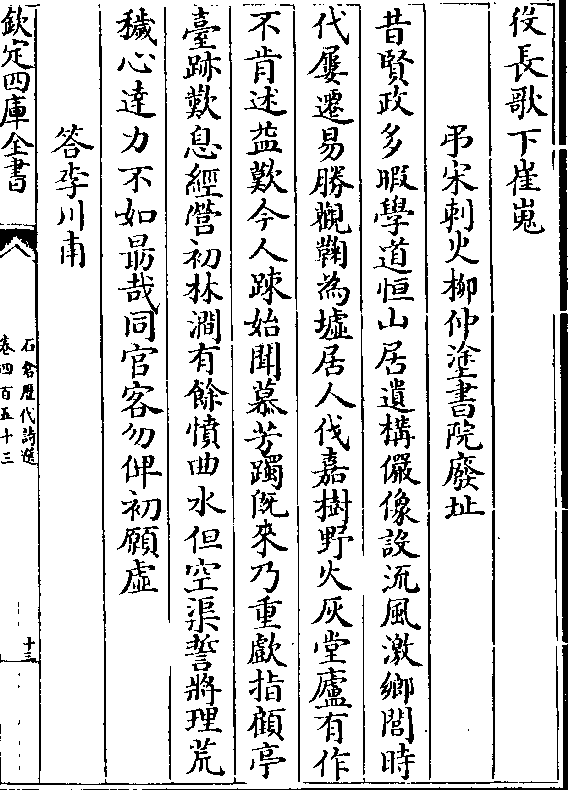 役長歌下崔嵬
弔宋刺火柳仲塗書院廢址
昔賢政多暇學道恒山居遺構儼像設流風激鄉閭時
代屢遷易勝觀鞠為墟居人伐嘉樹野火灰堂廬有作
不肯述益歎今人踈始聞慕芳躅旣來乃重歔指顧亭
臺跡歎息經營初林澗有餘憤曲水但空渠誓將理荒
穢心逹力不如朂哉同官客勿俾初願虛
答李川甫
欽定四庫全書
石倉歷代詩選
卷四百五十三
十三